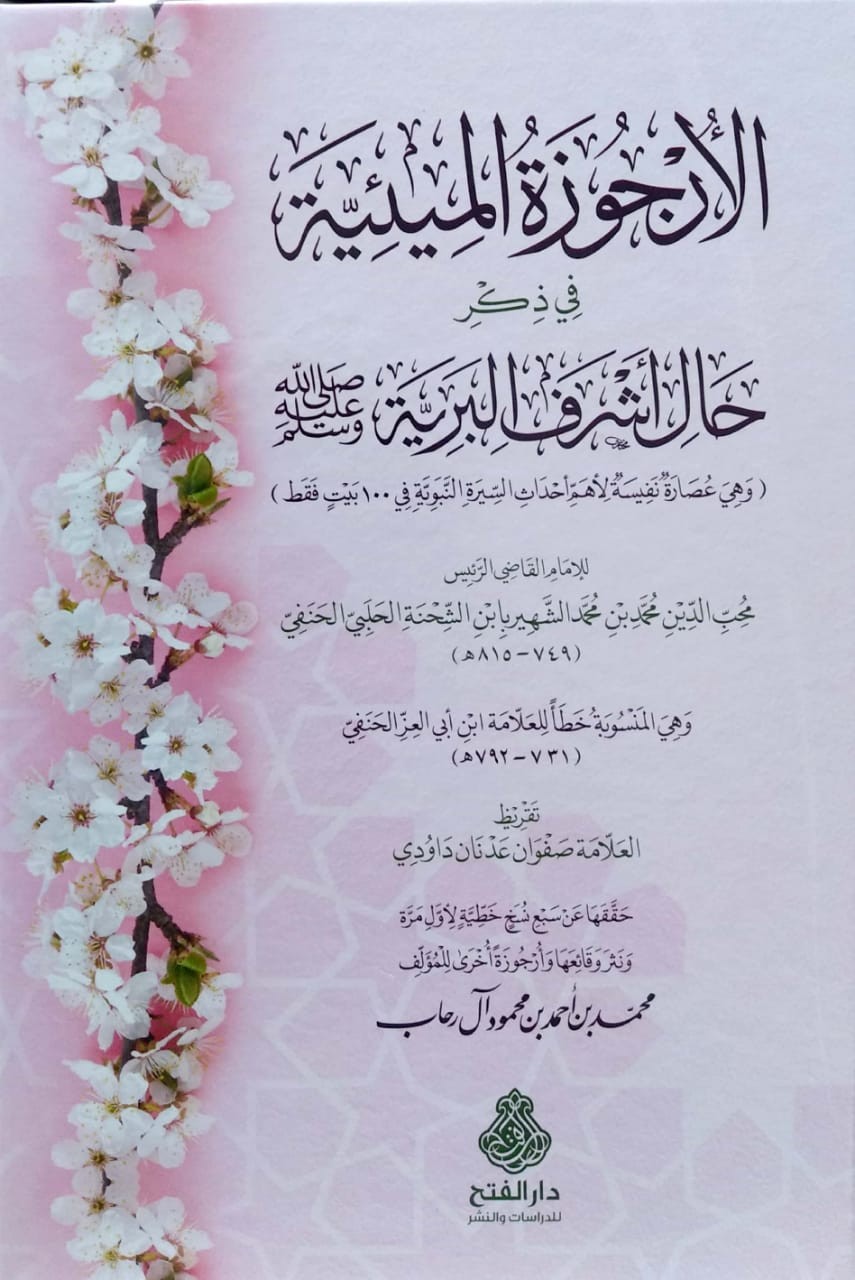 الأُرْجُوزَةُ المِيئِيَّة
فِي ذِكْرِ
حَالِ أَشْرَفِ البَرِيَّة صَلَّى اللَّه عَلَيْهِ وَسَلَّم
(وَهِيَ عُصَارَةٌ نَفِيسَةٌ لِأَهَمِّ أَحْدَاثِ السِّيرَةِ النَّبَوِيَّةِ فِي ١٠٠ بَيْتٍ فَقَط)
للإمَامِ القَاضِي الرَّئِيس
مُحِبِّ الدِّيْنِ مُحَمَّدِ بْنِ مُحَمَّد الشَّهِيرِ بِابْنِ الشِّحْنَةِ الحَلَبِيِّ الحَنَفِيِّ
(٧٤٩-٨١٥هـ)
وَهِيَ المَنْسُوبَةُ خَطَأً لِلعَلَّامَة ابْنِ أَبِي العِزِّ الحَنَفِيِّ
(٧٣١-٧٩٢هـ)
تَقْرِيظ
العَلَّامَة صَفْوَان عَدْنَان دَاوُدِي
حَقَّقَهَا عَنْ سَبْعِ نُسَخٍ خَطِّيَّةٍ لِأَوَّلِ مَرَّة
وَنَثَرَ وَقَائِعَهَا وَأُرْجُوزَةً أُخْرَى لِلْمُؤَلِّفِ
محمّد بن أحمد بن محمود آل رحاب
دار الفتح
للدراسات والنشر